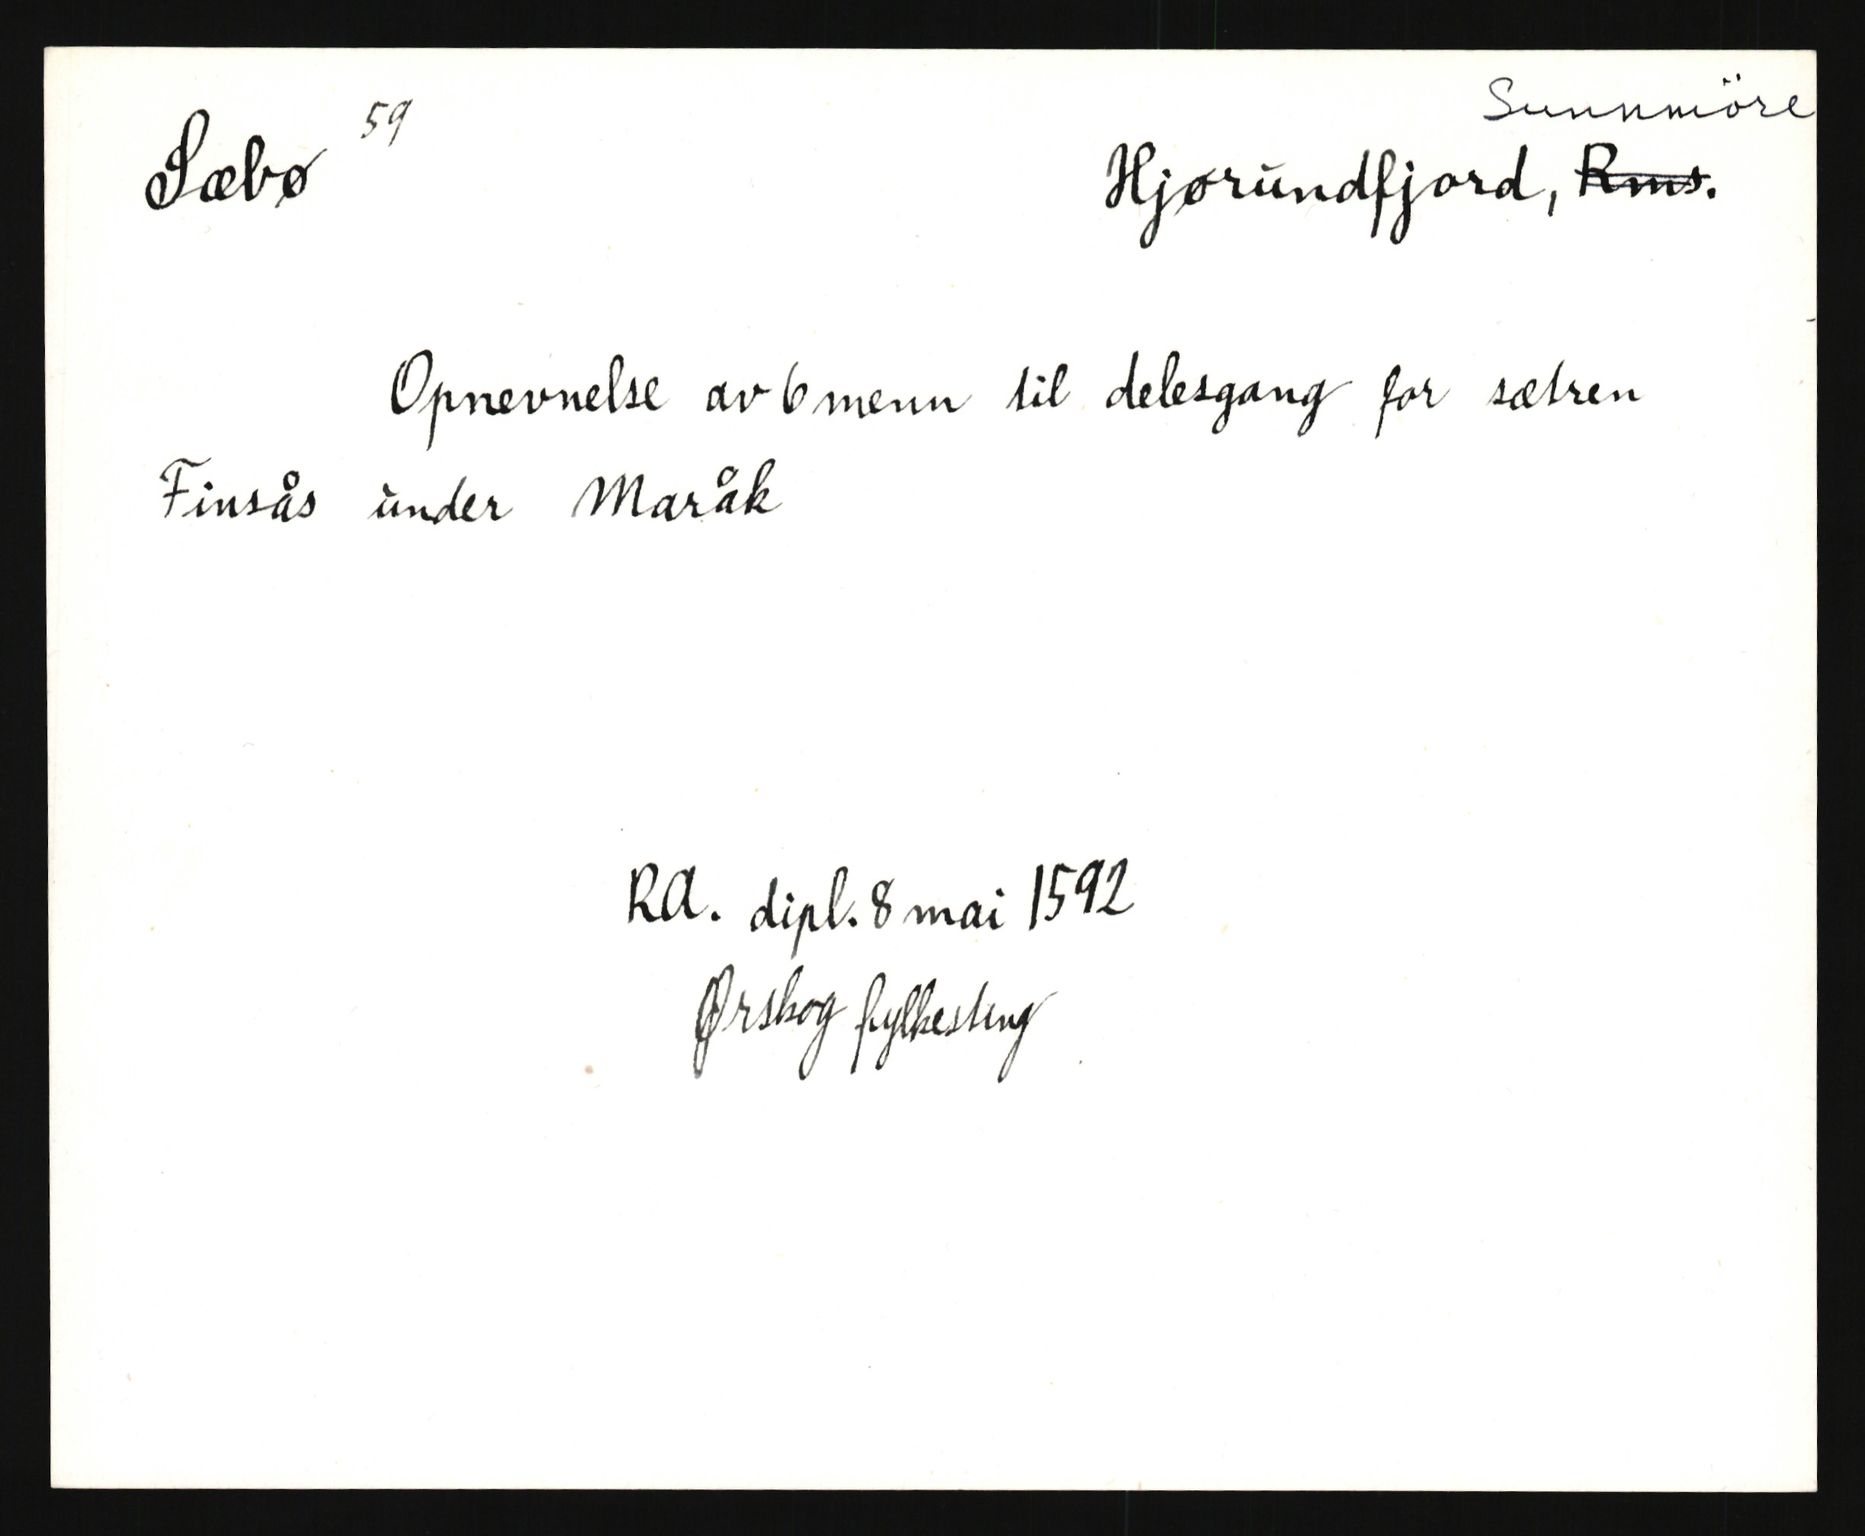 Sunnmöre
Sæbø 59 Hjørundfjord, Rms.
Opnevnelse av 6 menn til delesgang for sætren
Finsås under Maråk
RA. dipl. 8 mai 1592
Ørskog fylkesting